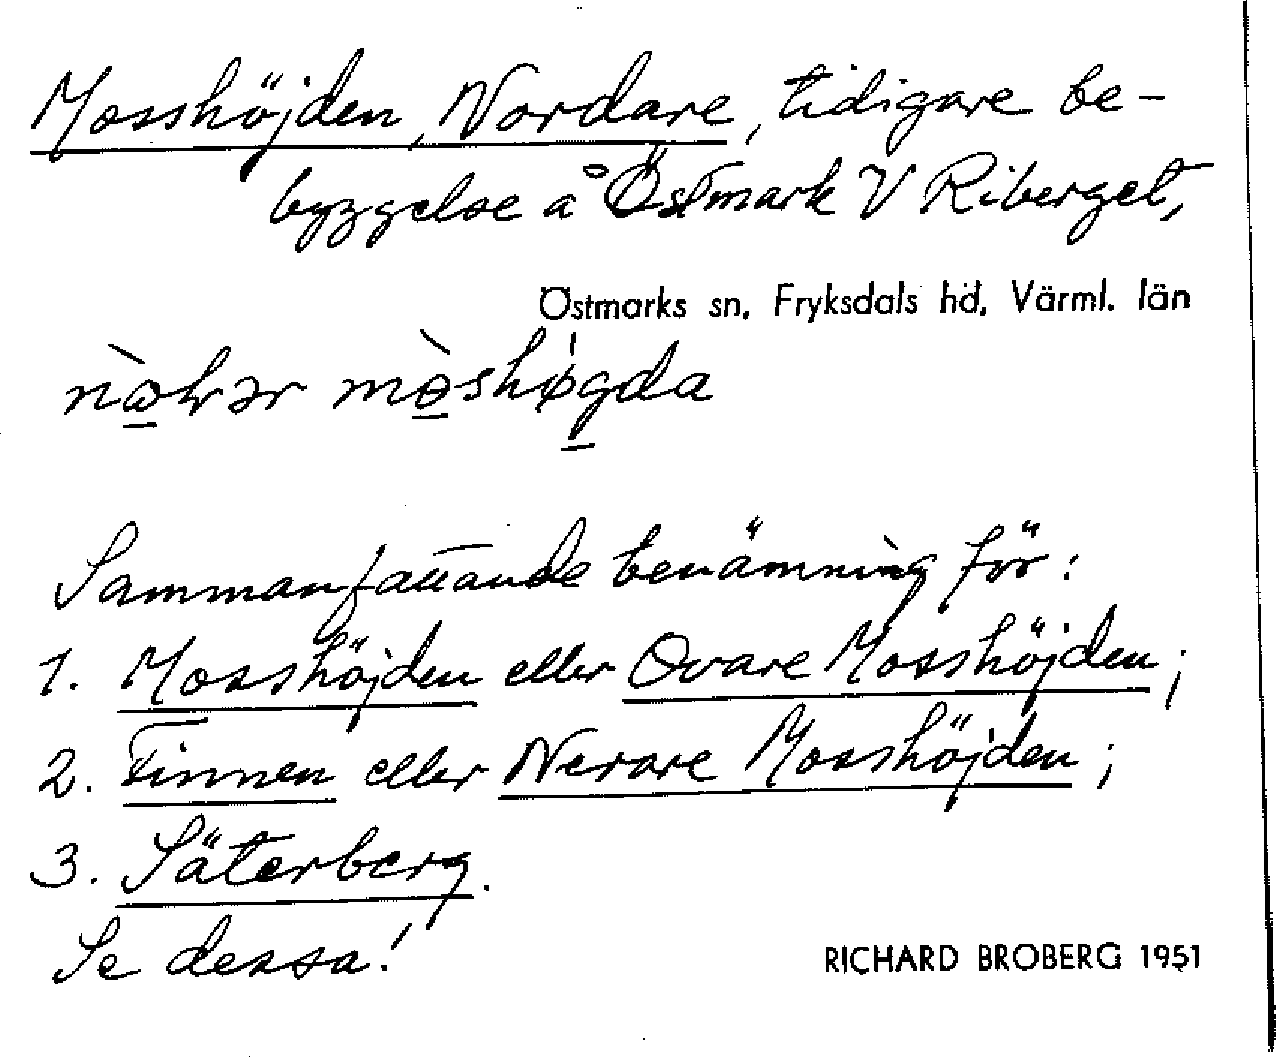 Mosshöjden, Nordare, tidigare be-
byggelse å Östmark V Riberget,
Östmarks sn, Fryksdals hd, Värml. län
Sammanfattande benämning för:
1. Mosshöjden eller Ovare Mosshöjden;
2. Finnen eller Nerare Mosshöjden;
3. Säterberg.
Se dessa!
RICHARD BROBERG 1951